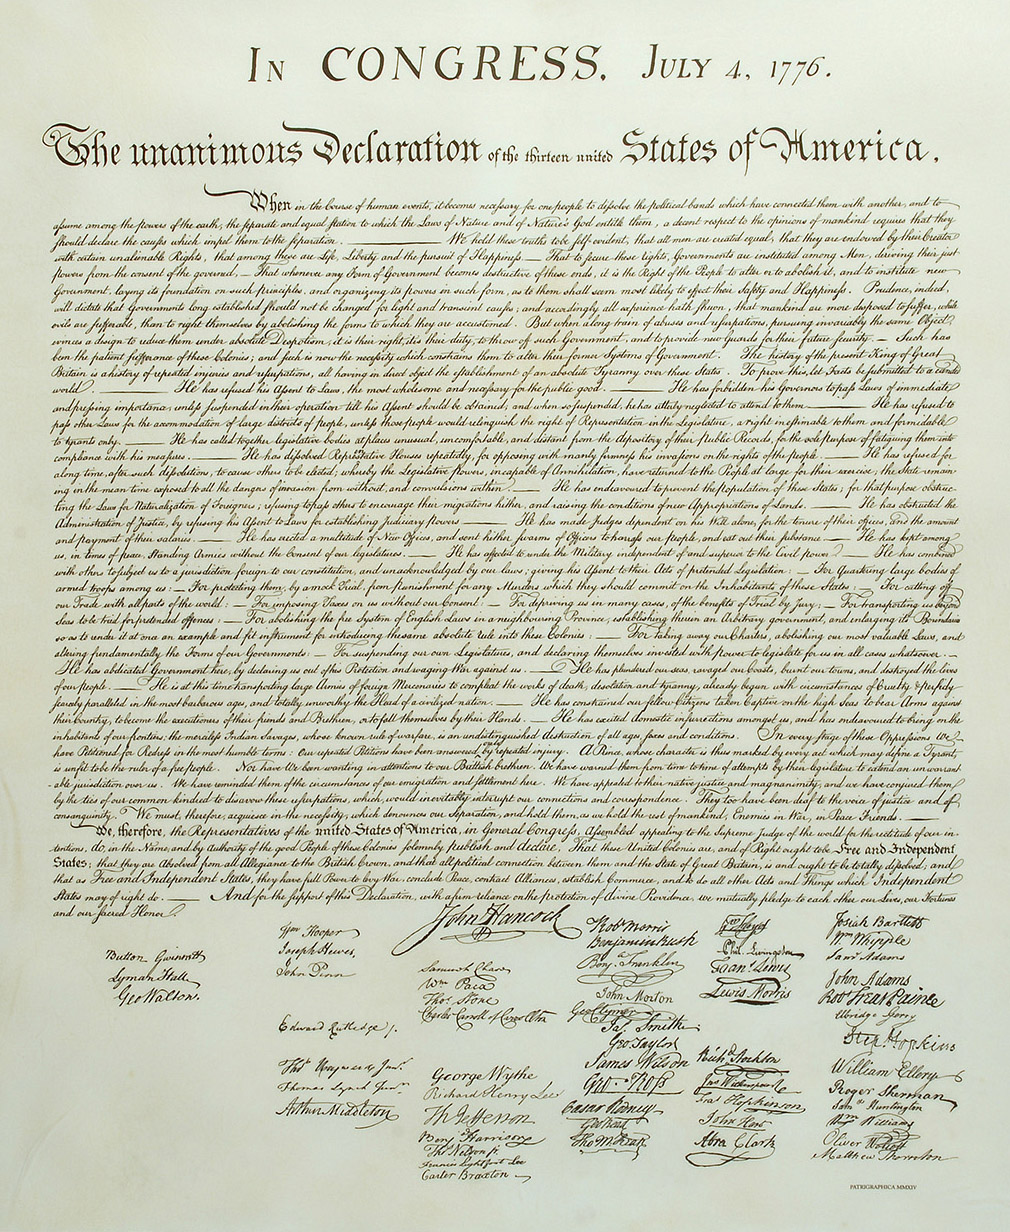 In CONGRESS, July 4, 1776.
The unanimous Declaration of the thirteen united States of America,
When in the Course of human events, it becomes necessary for one people to dissolve the political bands which have connected them with another, and to
assume among the powers of the earth, the separate and equal station to which the Laws of Nature and of Nature's God entitle them, a decent respect to the opinions of mankind requires that they
should declare the causes which impel them to the separation. — We hold these truths to be self-evident, that all men are created equal, that they are endowed by their Creator
with certain unalienable Rights, that among these are Life, Liberty and the pursuit of Happiness. — That to secure these rights, Governments are instituted among Men, deriving their just
powers from the consent of the governed, — That whenever any Form of Government becomes destructive of these ends, it is the Right of the People to alter or to abolish it, and to institute new
Government, laying its foundation on such principles, and organizing its powers in such form, as to them shall seem most likely to effect their Safety and Happiness. Prudence, indeed,
will dictate that Governments long established should not be changed for light and transient causes; and accordingly all experience hath shewn, that mankind are more disposed to suffer, while
evils are sufferable, than to right themselves by abolishing the forms to which they are accustomed. But when a long train of abuses and usurpations, pursuing invariably the same Object,
evinces a design to reduce them under absolute Despotism, it is their right, it is their duty, to throw off such Government, and to provide new Guards for their future security. — Such has
been the patient sufferance of these Colonies; and such is now the necessity which constrains them to alter their former Systems of Government. The history of the present King of Great
Britain is a history of repeated injuries and usurpations, all having in direct object the establishment of an absolute Tyranny over these States. To prove this, let Facts be submitted to a candid
world. — He has refused his Assent to Laws, the most wholesome and necessary for the public good. — He has forbidden his Governors to pass Laws of immediate
and pressing importance, unless suspended in their operation till his Assent should be obtained; and when so suspended, he has utterly neglected to attend to them. — He has refused to
pass other Laws for the accommodation of large districts of people, unless those people would relinquish the right of Representation in the Legislature, a right inestimable to them and formidable
to tyrants only. — He has called together legislative bodies at places unusual, uncomfortable, and distant from the depository of their Public Records, for the sole purpose of fatiguing them into
compliance with his measures. — He has dissolved Representative Houses repeatedly, for opposing with manly firmness his invasions on the rights of the people. — He has refused for
a long time, after such dissolutions, to cause others to be elected; whereby the Legislative powers, incapable of Annihilation, have returned to the People at large for their exercise; the State remain-
ing in the mean time exposed to all the dangers of invasion from without, and convulsions within. — He has endeavoured to prevent the population of these States; for that purpose obstruc-
ting the Laws for Naturalization of Foreigners; refusing to pass others to encourage their migrations hither, and raising the conditions of new Appropriations of Lands. — He has obstructed the
Administration of Justice, by refusing his Assent to Laws for establishing Judiciary powers. — He has made Judges dependent on his Will alone, for the tenure of their offices, and the amount
and payment of their salaries. — He has erected a multitude of New Offices, and sent hither swarms of Officers to harrass our people, and eat out their substance. — He has kept among
us, in times of peace, Standing Armies without the Consent of our legislatures. — He has affected to render the Military independent of and superior to the Civil power. — He has combined
with others to subject us to a jurisdiction foreign to our constitution, and unacknowledged by our laws; giving his Assent to their Acts of pretended Legislation: — For Quartering large bodies of
armed troops among us: — For protecting them, by a mock Trial, from punishment for any Murders which they should commit on the Inhabitants of these States: — For cutting off
our Trade with all parts of the world: — For imposing Taxes on us without our Consent: — For depriving us in many cases, of the benefits of Trial by Jury: — For transporting us beyond
Seas to be tried for pretended offences: — For abolishing the free System of English Laws in a neighbouring Province, establishing therein an Arbitrary government, and enlarging its Boundaries
so as to render it at once an example and fit instrument for introducing the same absolute rule into these Colonies: — For taking away our Charters, abolishing our most valuable Laws, and
altering fundamentally the Forms of our Governments: — For suspending our own Legislatures, and declaring themselves invested with power to legislate for us in all cases whatsoever. —
He has abdicated Government here, by declaring us out of his Protection and waging War against us. — He has plundered our seas, ravaged our Coasts, burnt our towns, and destroyed the lives
of our people. — He is at this time transporting large Armies of foreign Mercenaries to compleat the works of death, desolation and tyranny, already begun with circumstances of Cruelty & perfidy
scarcely paralleled in the most barbarous ages, and totally unworthy the Head of a civilized nation. — He has constrained our fellow Citizens taken Captive on the high Seas to bear Arms against
their Country, to become the executioners of their friends and Brethren, or to fall themselves by their Hands. — He has excited domestic insurrections amongst us, and has endeavoured to bring on the
inhabitants of our frontiers, the merciless Indian Savages, whose known rule of warfare, is an undistinguished destruction of all ages, sexes and conditions. In every stage of these Oppressions We
have Petitioned for Redress in the most humble terms: Our repeated Petitions have been answered only by repeated injury. A Prince, whose character is thus marked by every act which may define a Tyrant,
is unfit to be the ruler of a free people. Nor have We been wanting in attentions to our Brittish brethren. We have warned them from time to time of attempts by their legislature to extend an unwarrant-
able jurisdiction over us. We have reminded them of the circumstances of our emigration and settlement here. We have appealed to their native justice and magnanimity, and we have conjured them
by the ties of our common kindred to disavow these usurpations, which, would inevitably interrupt our connections and correspondence. They too have been deaf to the voice of justice and of
consanguinity. We must, therefore, acquiesce in the necessity, which denounces our Separation, and hold them, as we hold the rest of mankind, Enemies in War, in Peace Friends. —
We, therefore, the Representatives of the united States of America, in General Congress, Assembled, appealing to the Supreme Judge of the world for the rectitude of our in-
tentions, do, in the Name, and by Authority of the good People of these Colonies, solemnly publish and declare, That these United Colonies are, and of Right ought to be Free and Independent
States; that they are Absolved from all Allegiance to the British Crown, and that all political connection between them and the State of Great Britain, is and ought to be totally dissolved; and
that as Free and Independent States, they have full Power to levy War, conclude Peace, contract Alliances, establish Commerce, and to do all other Acts and Things which Independent
States may of right do. — And for the support of this Declaration, with a firm reliance on the protection of divine Providence, we mutually pledge to each other our Lives, our Fortunes
and our sacred Honor.
John Hancock
Button Gwinnett
Lyman Hall
Geo Walton.
Wm Hooper
Joseph Hewes,
John Penn
Edward Rutledge /.
Thos Heyward Junr.
Thomas Lynch Junr.
Arthur Middleton
Samuel Chase
Wm Paca
Thos Stone
Charles Carroll of Carrollton
George Wythe
Richard Henry Lee
Th Jefferson
Benj Harrison
Thos Nelson jr.
Francis Lightfoot Lee
Carter Braxton
Robt Morris
Benjamin Rush
Benja Franklin
John Morton
Geo Clymer
Jas. Smith
Geo Taylor
James Wilson
Geo. Ross
Caesar Rodney
Geo Read
Tho M:Kean
Wm Floyd
Phil. Livingston
Frans. Lewis
Lewis Morris
Richd. Stockton
Jno Witherspoon
Fras. Hopkinson
John Hart
Abra Clark
Josiah Bartlett
Wm Whipple
Saml Adams
John Adams
Robt Treat Paine
Elbridge Gerry
Step. Hopkins
William Ellery
Roger Sherman
Saml Huntington
Wm Williams
Oliver Wolcott
Matthew Thornton
PATRIGRAPHICA MMXIV